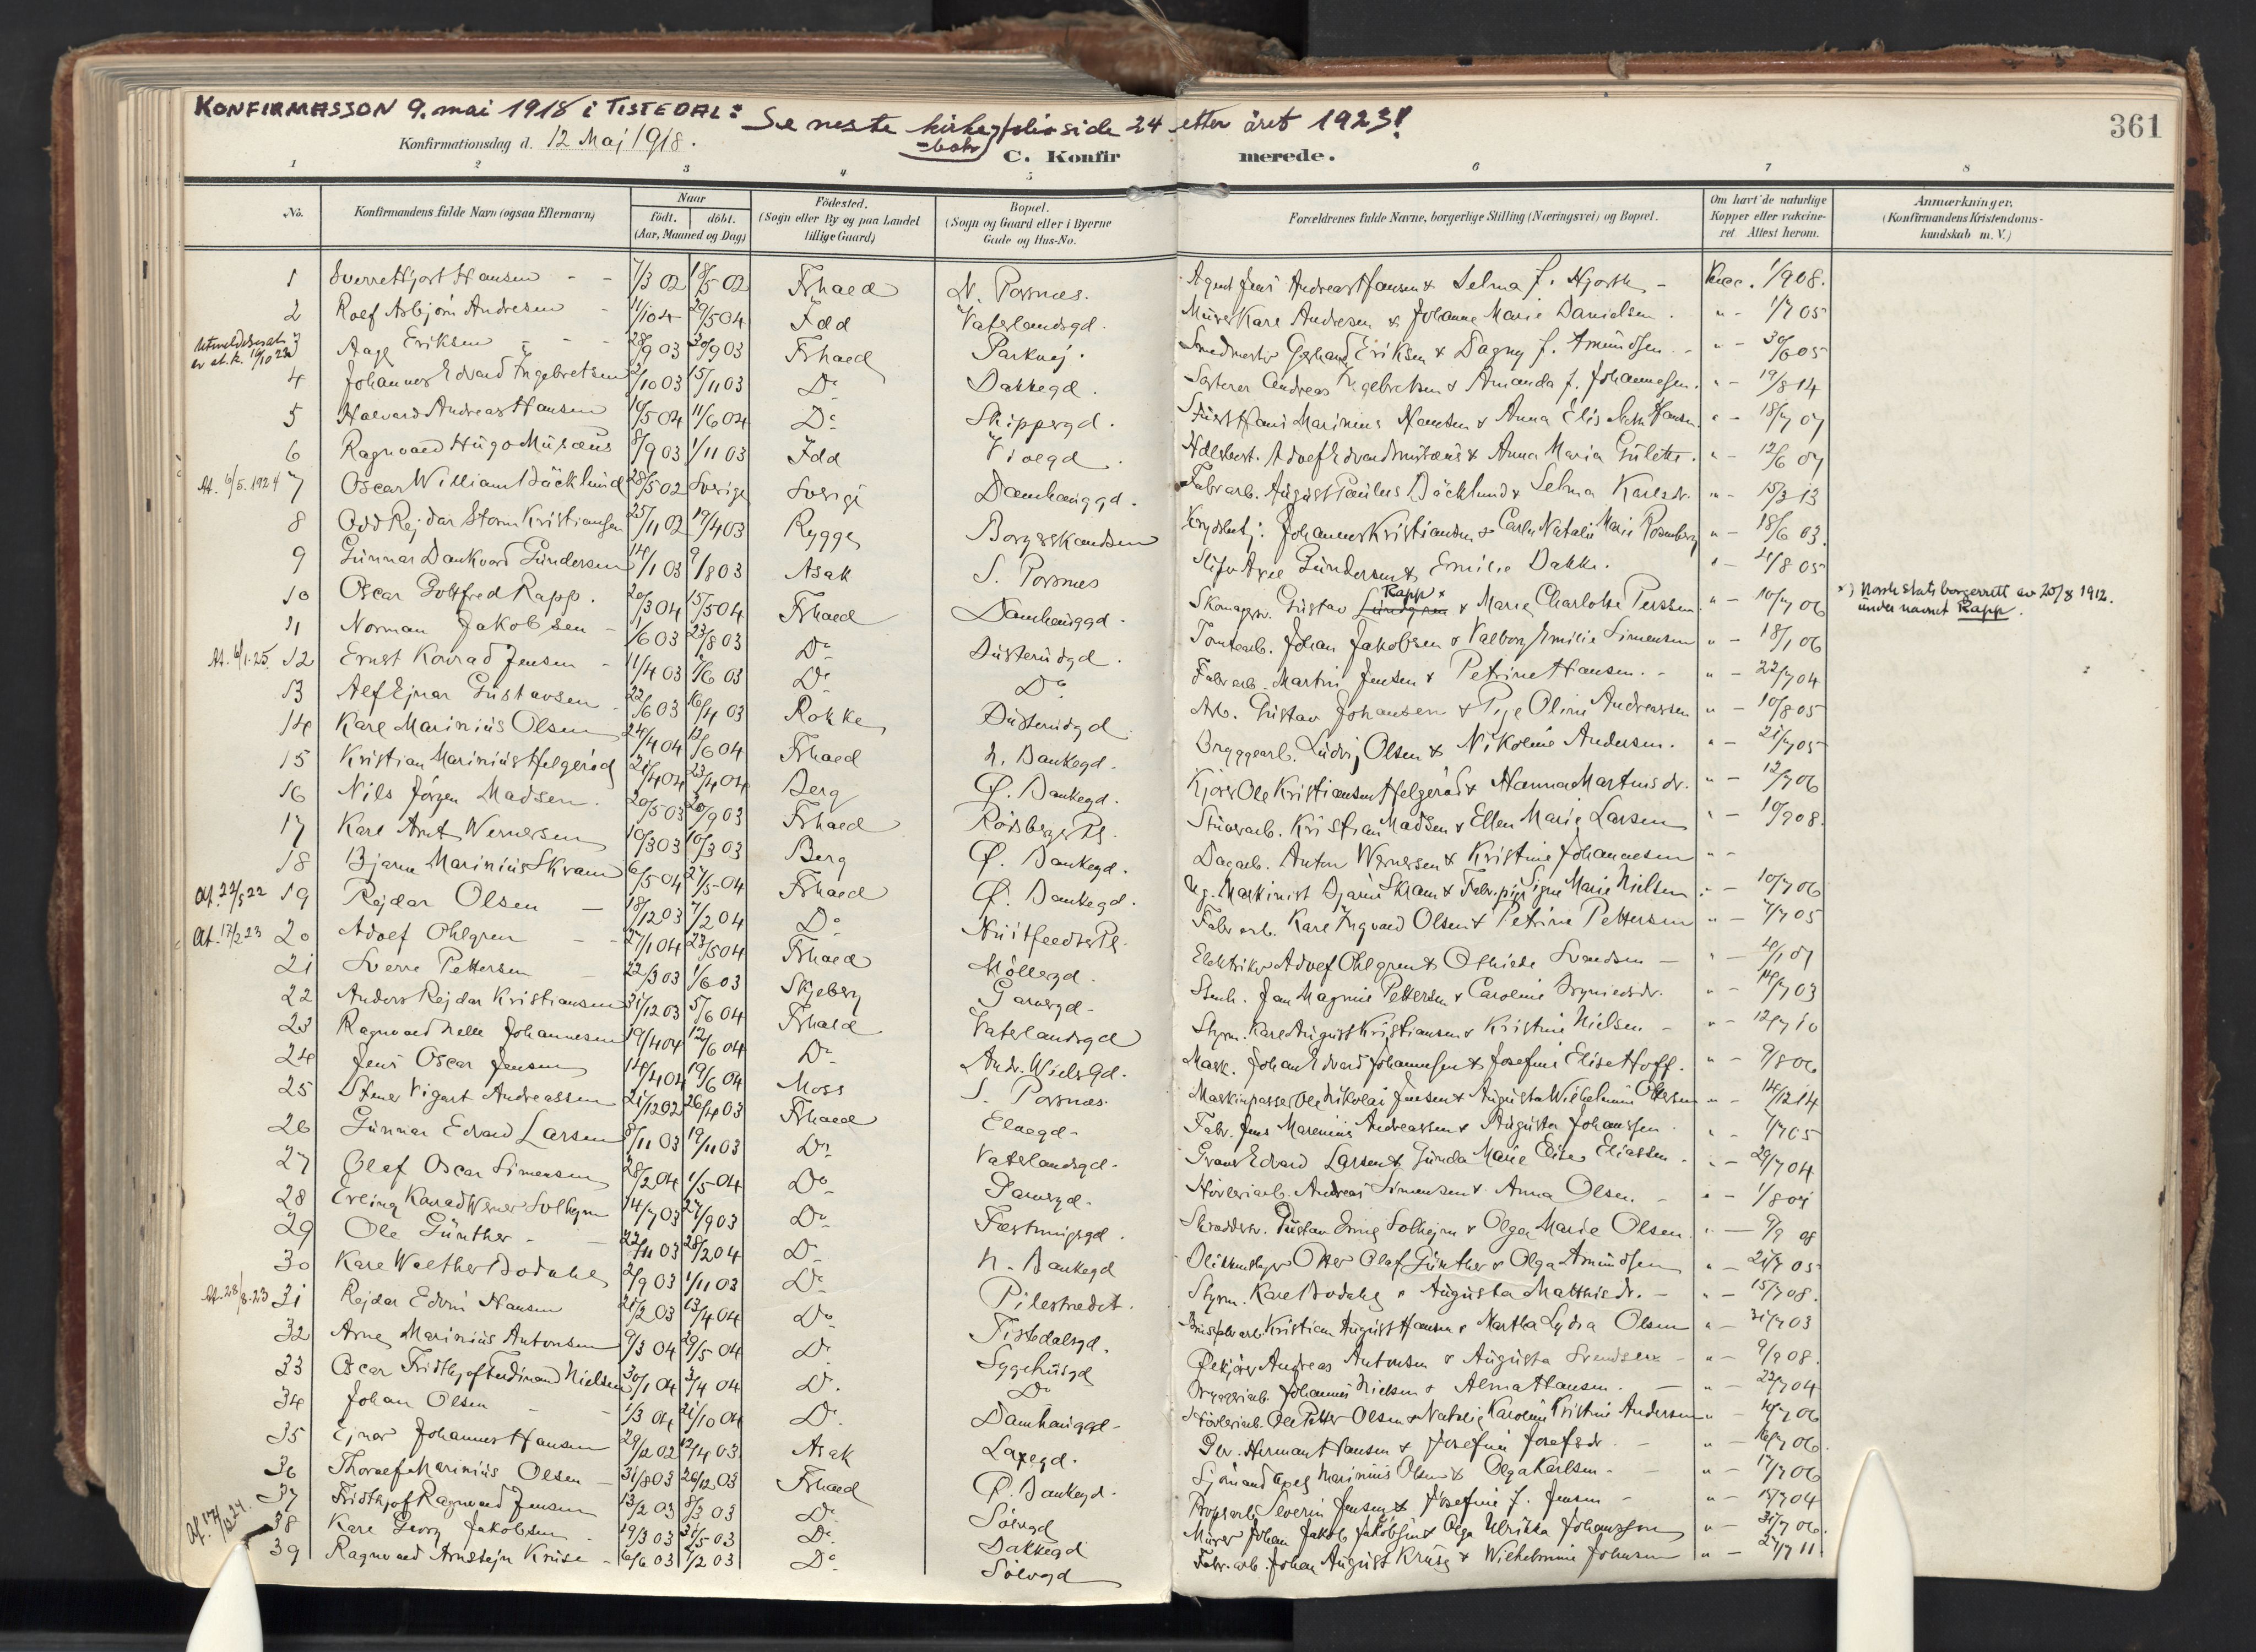 KONFIRMASJON 9. mai 1918 i TISTEDAL: Se neste kirke- folio side 24 etter året 1923!
-bok
361
Konfirmationsdag d. 12 Maj 1918.
C. Konfirmerede.
1 2 3 4 5 6 7 8
No. Konfirmandens fulde Navn (ogsaa Efternavn) Naar født. døbt. (Aar, Maaned og Dag) Fødested. (Sogn eller By og paa Landet tillige Gaard) Bopæl. (Sogn og Gaard eller i Byerne Gade og Hus-No. Forældrenes fulde Navne, borgerlige Stilling (Næringsvei) og Bopæl. Om havt de naturlige Kopper eller vakcineret Attest herom. Anmærkninger. (Konfirmandens Kristendomskundskab m. V.)
1 Sverre Hjort Hansen 7/3 02 18/5 02 Frhald N. Porsnes. Agent Jens Andreas Hansen & Selma f. Hjorth Vacc. 1/9 08.
2 Rolf Asbjørn Andresen 11/1 04 29/5 04 Idd Vaterlandsgd. Murer Karl Andresen & Johanne Marie Danielsen. " - 1/7 05
3 Aage Eriksen 28/9 03 30/9 03 Frhald Parkvej. Smedmester Gerhard Eriksen & Dagny f. Amundsen " - 30/6 05
4 Johannes Edvard Ingebretsen 2/10 03 15/11 03 Do Bakkegd. Sorterer Andreas Ingebretsen & Amanda f. Johannesen. " - 19/8 14
5 Halvard Andreas Hansen 10/5 04 11/6 04 Do Skippergd. Hans Marinius Hansen & Anna Elis Hansen " - 18/7 07
6 Ragnvald Hugo Musæus 8/9 03 1/11 03 Idd Violgd. Adolf Edvard Musæus & Anna Maria Gulette. " - 12/6 07
At. 6/5. 1924 7 Oscar William Bäcklund 28/5 02 Sverige Sverige Damhauggd. Fabr arb. August Paulus Bäcklund & Selma Karlsdr. " - 15/3 13
8 Odd Rejdar Storm Kristiansen 25/11 02 19/4 03 Rygge Borgerskandsen Johannes Kristiansen & Carla Natalie Marie Rosenberg " - 18/6 03.
9 Gunnar Dankvard Gundersen 14/1 03 9/8 03 Asak S. Porsnes Sliper Axel Gundersen & Emilie Bakke. " - 4/8 05
10 Oscar Gottfred Rapp. 20/3 04 15/5 04 Frhald Damhauggd. Skomagersv. Gustav Lindgren Rapp x & Marie Charlotte Perssen " - 10/7 06 x) Norsk statsborgerrett av 20/8 1912. under navnet Rapp.
11 Norman Jakobsen 1/6 03 23/8 03 Do Busterudgd. Tomtearb. Johan Jakobsen & Valborg Emilie Simensen " - 18/1 06
At. 6/1.25. 12 Ernst Konrad Jensen 11/4 03 7/6 03 Do Do Fabr arb. Martin Jensen & Petrine Hansen. " - 22/7 04
13 Alf Ejnar Gustavsen 22/6 03 16/4 03 Rokke Busterudgd Arb. Gustav Johansen & Pije Oline Andreassen " - 10/8 05
14 Karl Marinius Olsen 24/4 04 13/6 04 Frhald N. Bankegd. Bryggearb. Ludvig Olsen & Nikoline Andersen. " - 21/7 05
15 Kristian Marinius Helgerød 21/4 04 23/4 04 Berg Ø. Bankegd. Kjører Ole Kristiansen Helgerød & Hanna Martinsdr. " - 12/7 06
16 Nils Jørgen Madsen. 20/5 03 20/9 03 Frhald Rødsberg Pl. Stuerarb. Kristian Madsen & Ellen Marie Larsen " - 10/9 08.
17 Karl Arnt Wernersen 10/3 03 10/3 03 Berg Ø. Bankegd. Dagarb. Anton Wernersen & Kristine Johannesen " -
18 Bjarne Marinius Skram 6/5 04 27/5 04 Frhald Ø. Bankegd. Ug. Maskinist Bjarne Skram & Fabr. pige Signe Marie Nielsen " - 10/7 06
At. 22/5 22 19 Rejdar Olsen 18/12 03 7/2 04 Do Fabr arb. Karl Ingvald Olsen & Petrine Pettersen " - 7/7 05
At. 17/2 23 20 Adolf Ohlgren 27/1 04 23/5 04 Frhald Møllegd. Elektriker Adolf Ohlgren & Othilde Svendsen " - 4/1 07
21 Sverre Pettersen 22/3 03 1/6 03 Skjeberg Garvergd. Stenh. Jan Magnus Pettersen & Caroline " - 14/7 03
22 Anders Rejdar Kristiansen 31/12 03 5/6 04 Frhald Vaterlandsgd Styrm. Karl August Kristiansen & Kristine Nielsen " - 12/7 10
23 Ragnvald Johannesen 19/4 04 12/6 04 Do Andr. Wiels Gd. Mask. Johan Edvard Johannesen & Josefine Elise Hoff. " - 9/8 06
24 Jens Oscar Jensen 14/4 04 19/6 04 Moss S. Porsnes. Maskinpasser Ole Nikolai Jensen & Augusta Wilhelmine Olsen " - 14/12 14
25 Stener Vigart Andreassen 21/12 02 26/4 03 Frhald Elvegd. Fabr. Jens Marenius Andreassen & Augusta Johanssen. " - 1/7 05
26 Gunnar Edvard Larsen 8/11 03 19/11 03 Do Vaterlandsgd. Edvard Larsen & Gunda Marie Elise Eliassen. " - 29/7 04
27 Olaf Oscar Simensen 28/2 04 1/5 04 Do Garvergd. Høvleriarb. Andreas Simensen & Anna Olsen. " - 1/8 04
28 Erling Konrad Werner Solhejm 14/7 03 27/9 03 Do Fæstningsgd. Skrædderv. Gustav Solhejm & Olga Marie Olsen. " - 9/9 08
29 Ole Günther 22/11 03 28/2 04 Do N. Bankegd Blikkenslager Otter Olaf Günther & Olga Amundsen " - 21/7 05
30 Karl Walther Bodahl 2/9 03 1/11 03 Do Pilestrædet. Styrm. Karl Bodahl & Augusta Mathisdr. " - 15/7 08.
At. 28/8.23 31 Rejdar Edvin Hansen 21/2 03 13/4 04 Do Tistedalsgd. Kristian August Hansen & Martha Lydia Olsen " - 31/7 03
32 Arne Marinius Antonsen 9/3 04 29/5 04 Do Sygehusgd Andreas Antonsen & Augusta Svendsen " - 9/9 08.
33 Oscar Fridthjof Ferdinand Nielsen 30/1 04 3/4 04 Do. Do Bryggeriarb. Johannes Nielsen & Alma Hansen. " - 22/7 04
34 Johan Olsen 1/3 04 21/10 04 Do. Damhauggd. Høvleriarb. Ole Petter Olsen & Natalie Karoline Kristine Andersen " - 4/7 06
35 Ejnar Johannes Hansen 29/12 02 12/4 03. Asak Laxegd. Herman Hansen & Josefine Josefsdr. " - 16/7 06.
36 Thoralf Marinius Olsen 31/8 03 26/12 03 Frhald Ø. Bankegd. Sjømand Axel Marinius Olsen & Olga Karlsen. " - 17/7 06
At. 17/12 24. 37 Fridthjof Ragnvald Jensen 13/2 03 8/3 03 Do. Sølvgd Severin Jensen & Josefine f. Jensen " - 15/7 04
38 Karl Georg Jakobsen 19/3 03 31/5 03 Do. Bakkegd Murer Johan Jakob Jakobsen & Olga Ulrikka Johansson " - 31/7 06.
39 Ragnvald Arnstejn Kruse 6/6 03 1/2 03 Do Sølvgd Fabr. arb. Johan August Kruse & Wilhelmine Johnsen " - 27/7 11.